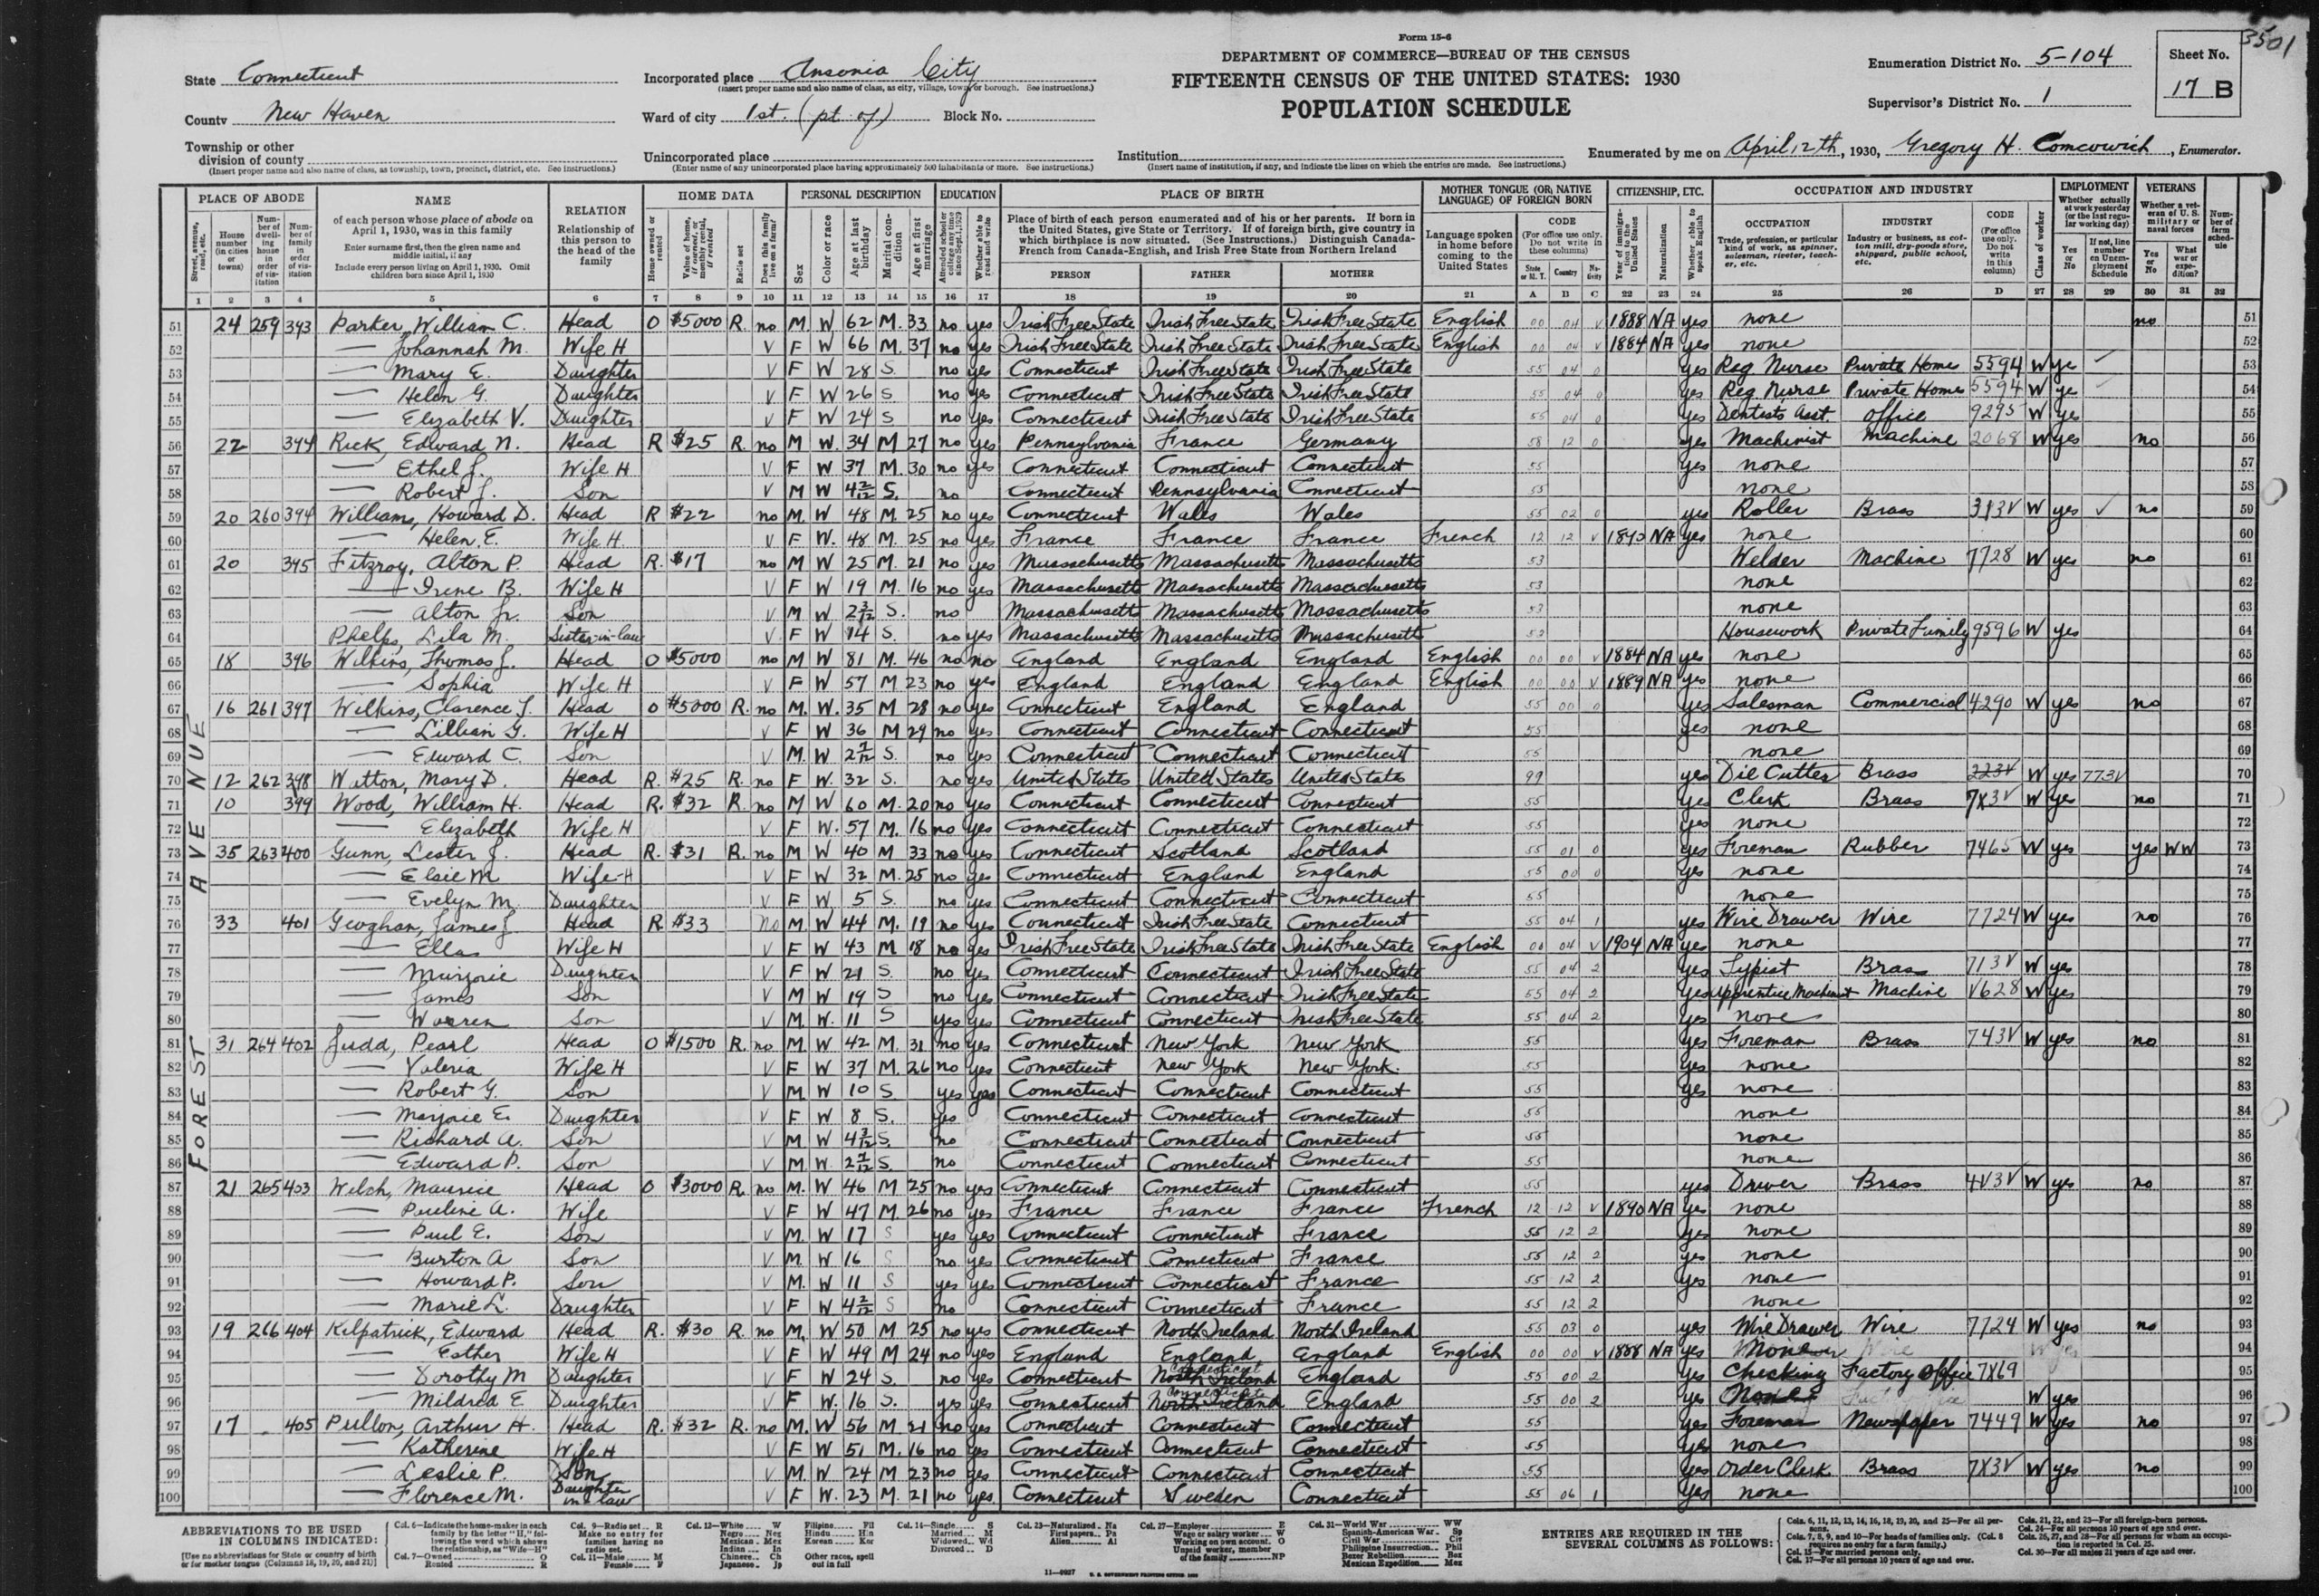 3501
Form 15-6
DEPARTMENT OF COMMERCE—BUREAU OF THE CENSUS
FIFTEENTH CENSUS OF THE UNITED STATES: 1930
POPULATION SCHEDULE
State Connecticut
Incorporated place Ansonia City
(Insert proper name and also name of class, as city, village, town, or borough. See instructions.)
Enumeration District No. 5-104
Sheet No. 17 B
County New Haven
Ward of city 1st. (pt of) Block No.
Supervisor's District No. 1
Township or other division of county
(Insert proper name and also name of class, as township, town, precinct, district, etc. See instructions.)
Unincorporated place
(Enter name of any unincorporated place having approximately 500 inhabitants or more. See instructions.)
Institution
(Insert name of institution, if any, and indicate the lines on which the entries are made. See instructions.)
Enumerated by me on April 12th, 1930, Gregory H. Comcowich, Enumerator.
PLACE OF ABODE NAME RELATION HOME DATA PERSONAL DESCRIPTION EDUCATION PLACE OF BIRTH MOTHER TONGUE (OR NATIVE LANGUAGE) OF FOREIGN BORN CITIZENSHIP, ETC. OCCUPATION AND INDUSTRY EMPLOYMENT VETERANS
FOREST AVENUE
51 24 259 393 Parker, William C. Head O $5000 R. no M. W 62 M. 33 no yes Irish Free State Irish Free State Irish Free State English 00 04 V 1888 NA yes none no 51
52 — Johannah M. Wife H V F W 66 M. 37 no yes Irish Free State Irish Free State Irish Free State English 00 04 V 1884 NA yes none 52
53 — Mary E. Daughter V F W 28 S no yes Connecticut Irish Free State Irish Free State 55 04 0 yes Reg Nurse Private Home 5594 W ye 53
54 — Helen G. Daughter V F W 26 S no yes Connecticut Irish Free State Irish Free State 55 04 0 yes Reg Nurse Private Home 5594 W ye 54
55 — Elizabeth V. Daughter V F W 24 S no yes Connecticut Irish Free State Irish Free State 55 04 0 yes Dentists Asst. office 9295 W yes 55
56 22 394 Rick, Edward N. Head R $25 R. no M W. 34 M 27 no yes Pennsylvania France Germany 58 12 0 yes Machinist Machine 2068 W yes no 56
57 — Ethel J. Wife H V F W 37 M. 30 no yes Connecticut Connecticut Connecticut 55 yes none 57
58 — Robert J. Son V M W 4 2/12 S. no Connecticut Pennsylvania Connecticut 55 none 58
59 20 260 394 Williams, Howard D. Head R $22 no M. W 48 M. 25 no yes Connecticut Wales Wales 55 02 0 yes Roller Brass 313V W yes ✓ no 59
60 — Helen E. Wife H V F W. 48 M. 25 no yes France France France French 12 12 V 1890 NA yes none 60
61 20 395 Fitzroy, Alton P. Head R. $17 no M W 25 M. 21 no yes Massachusetts Massachusetts Massachusetts 53 Welder Machine 7728 W yes no 61
62 — Irene B. Wife H V F W 19 M. 16 no yes Massachusetts Massachusetts Massachusetts 53 none 62
63 — Alton Jr. Son V M W 2 3/12 S. no Massachusetts Massachusetts Massachusetts 53 none 63
64 Phelps, Lila M. Sister-in-law V F W 14 S. no yes Massachusetts Massachusetts Massachusetts 53 Housework Private Family 9596 W yes 64
65 18 396 Wilkins, Thomas J. Head O $5000 no M W 81 M. 46 no no England England England English 00 00 V 1884 NA yes none 65
66 — Sophia Wife H V F W 57 M 23 no yes England England England English 00 00 V 1889 NA yes none 66
67 16 261 397 Wilkins, Clarence T. Head O $5000 R. no M. W. 35 M 28 no yes Connecticut England England 55 00 0 yes Salesman Commercial 4290 W yes no 67
68 — Lillian G. Wife H V F W 36 M 29 no yes Connecticut Connecticut Connecticut 55 yes none 68
69 — Edward C. Son V M. W 2 7/12 S. no yes Connecticut Connecticut Connecticut 55 none 69
70 12 262 398 Watton, Mary D. Head R. $25 R. no F W. 32 S. no yes United States United States United States 99 yes Die Cutter Brass 2234 W yes 773V 70
71 10 399 Wood, William H. Head R. $32 R. no M W 60 M. 20 no yes Connecticut Connecticut Connecticut 55 yes Clerk Brass 7X3V W yes no 71
72 — Elizabeth Wife H V F W. 57 M. 16 no yes Connecticut Connecticut Connecticut 55 yes none 72
73 35 263 400 Gunn, Lester J. Head R. $31 R. no M W 40 M 33 no yes Connecticut Scotland Scotland 55 01 0 yes Foreman Rubber 7465 W yes yes WW 73
74 — Elsie M Wife-H V F W 32 M. 25 no yes Connecticut England England 55 00 0 yes none 74
75 — Evelyn M. Daughter V F W 5 S. no yes Connecticut Connecticut Connecticut 55 none 75
76 33 401 Geoghan, James J. Head R $33 no M. W 44 M. 19 no yes Connecticut Irish Free State Connecticut 55 04 1 yes Wire Drawer Wire 7724 W yes no 76
77 — Ella Wife H V F W 43 M 18 no yes Irish Free State Irish Free State Irish Free State English 00 04 V 1904 NA yes none 77
78 — Marjorie Daughter V F W 21 S. no yes Connecticut Connecticut Irish Free State 55 04 2 yes Typist Brass 713V W yes 78
79 — James Son V M W 19 S no yes Connecticut Connecticut Irish Free State 55 04 2 yes Apprentice Machinist Machine V628 W yes 79
80 — Warren Son V M. W. 11 S yes yes Connecticut Connecticut Irish Free State 55 04 2 yes none 80
81 31 264 402 Judd, Pearl Head O $1500 R. no M. W 42 M. 31 no yes Connecticut New York New York 55 yes Foreman Brass 743V W yes no 81
82 — Valeria Wife H V F W 37 M. 26 no yes Connecticut New York New York. 55 yes none 82
83 — Robert G. Son V M. W 10 S yes yes Connecticut Connecticut Connecticut 55 yes none 83
84 — Marjorie E. Daughter V F W 8 S. yes Connecticut Connecticut Connecticut 55 none 84
85 — Richard A. Son V M W 4 3/12 S. no Connecticut Connecticut Connecticut 55 none 85
86 — Edward P. Son V M. W. 2 7/12 S. no Connecticut Connecticut Connecticut 55 none 86
87 21 265 403 Welch, Maurice Head O $3000 R. no M. W 46 M 25 no yes Connecticut Connecticut Connecticut 55 yes Driver Brass 4V3V W yes no 87
88 — Pauline A. Wife V F W 47 M. 26 no yes France France France French 12 12 V 1890 NA yes none 88
89 — Paul E. Son V M. W 17 S yes yes Connecticut Connecticut France 55 12 2 yes none 89
90 — Burton A Son V M. W 16 S no yes Connecticut Connecticut France 55 12 2 yes none 90
91 — Howard P. Son V M. W 11 S yes yes Connecticut Connecticut France 55 12 2 yes none 91
92 — Marie L. Daughter V F W 4 2/12 S no Connecticut Connecticut France 55 12 2 none 92
93 19 266 404 Kilpatrick, Edward Head R. $30 R. no M. W 50 M 25 no yes Connecticut North Ireland North Ireland 55 03 0 yes Wire Drawer Wire 7724 W yes no 93
94 — Esther Wife H V F W 49 M 24 no yes England England England English 00 00 V 1888 NA yes None 94
95 — Dorothy M Daughter V F W 24 S. no yes Connecticut Connecticut North Ireland England 55 00 2 yes Checking Factory Office 7X69 95
96 — Mildred E Daughter V F W. 16 S. yes yes Connecticut Connecticut North Ireland England 55 00 2 yes None W yes 96
97 17 405 Pullon, Arthur H. Head R. $32 R. no M. W 56 M 21 no yes Connecticut Connecticut Connecticut 55 yes Foreman Newspaper 7449 W yes no 97
98 — Katherine Wife H V F W 51 M. 16 no yes Connecticut Connecticut Connecticut 55 yes none 98
99 — Leslie P. Son V M. W 24 M 23 no yes Connecticut Connecticut Connecticut 55 yes Order Clerk Brass 7X3V W yes no 99
100 — Florence M. Daughter in law V F W. 23 M. 21 no yes Connecticut Sweden Connecticut 55 06 1 yes none 100
ABBREVIATIONS TO BE USED IN COLUMNS INDICATED:
ENTRIES ARE REQUIRED IN THE SEVERAL COLUMNS AS FOLLOWS: